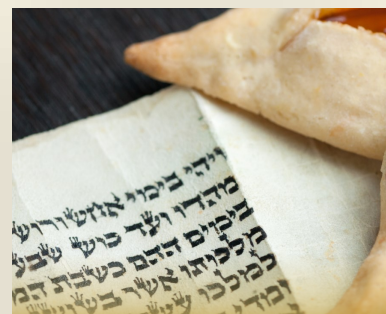 ויהי בימי אחשורוש
מהדו ועד כוש שבע
בימים ההם כשבת המ
מלכותו אשר בשוש
למלכו עש
ומדי